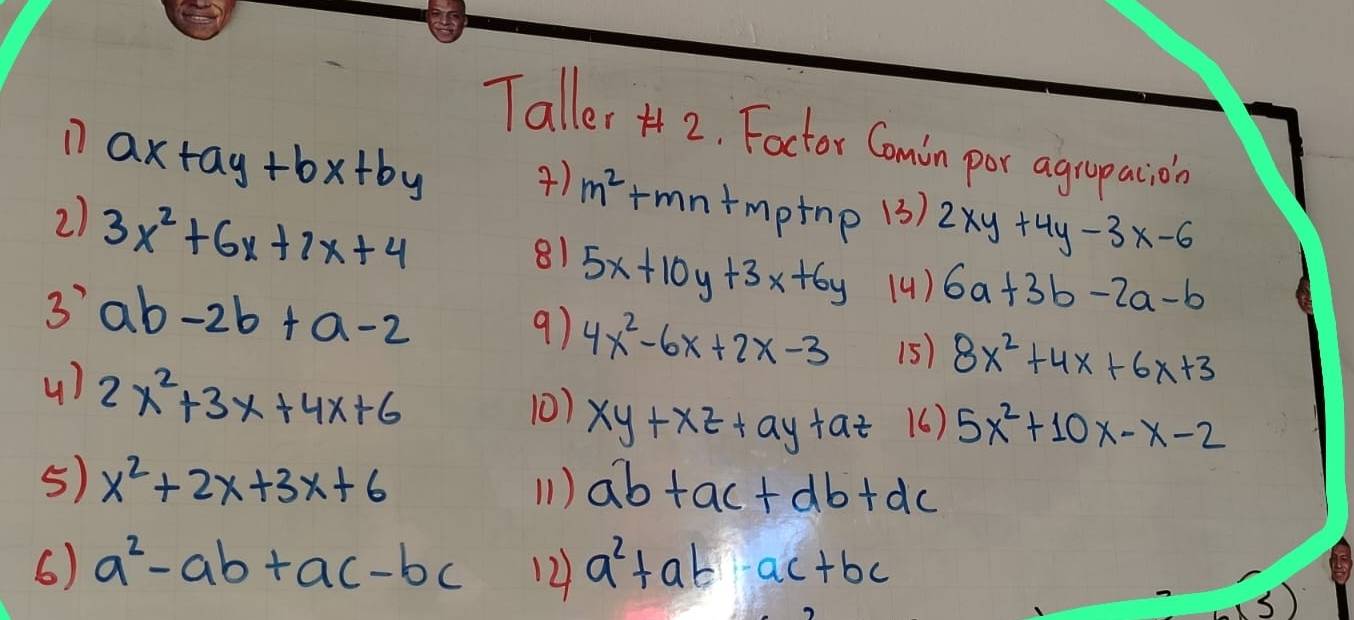 Taller # 2. Factor Común por agrupación
1) ax+ay+bx+by
2) 3x²+6x+2x+4
3) ab-2b+a-2
4) 2x²+3x+4x+6
5) x²+2x+3x+6
6) a²-ab+ac-bc
7) m²+mn+mp+np
8) 5x+10y+3x+6y
9) 4x²-6x+2x-3
10) xy+xz+ay+az
11) ab+ac+db+dc
12) a²+ab ac+bc
13) 2xy+4y-3x-6
14) 6a+3b-2a-b
15) 8x²+4x+6x+3
16) 5x²+10x-x-2